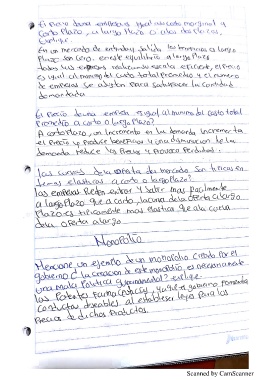 El Precio de una empresa es igual al costo marginal a
Corto Plazo, a largo Plazo o a los dos Plazos,
Explique
En un mercado de entrada y salida las ganancias a largo
Plazo son cero. en este equilibrio a largo Plazo
todas las empresas escala eficiente, el Precio
es igual al minimo del costo total promedio y el numero
de empresas se ajustan para satisfacer la cantidad
demandada
El Precio de una empresa es igual al minimo del costo total
Promedio a corto o largo Plazo?
A corto Plazo, un incremento en la demanda incrementa
el Precio y Produce beneficios y una disminucion de la
demanda reduce los Precios y Provoca Perdidas.
las curvas de la oferta de mercado son tipicamente
mas elasticas a corto o largo Plazo?
las empresas Pueden entrar y salir mas facilmente
a largo Plazo que a corto, la curva de la oferta a largo
Plazo es tipicamente mas elastica que la curva
de la oferta a largo
Monopolio
Mencione un ejemplo de un monopolio creado Por el
gobierno ¿la creacion de este monopolio, es necesariamente
una mala Politica gubernamental? explique
las Patentes Farmaceuticas, ya que el gobierno fomenta
conductas deseables al establecer leyes Para los
Precios de dichos Productos.
Scanned by CamScanner